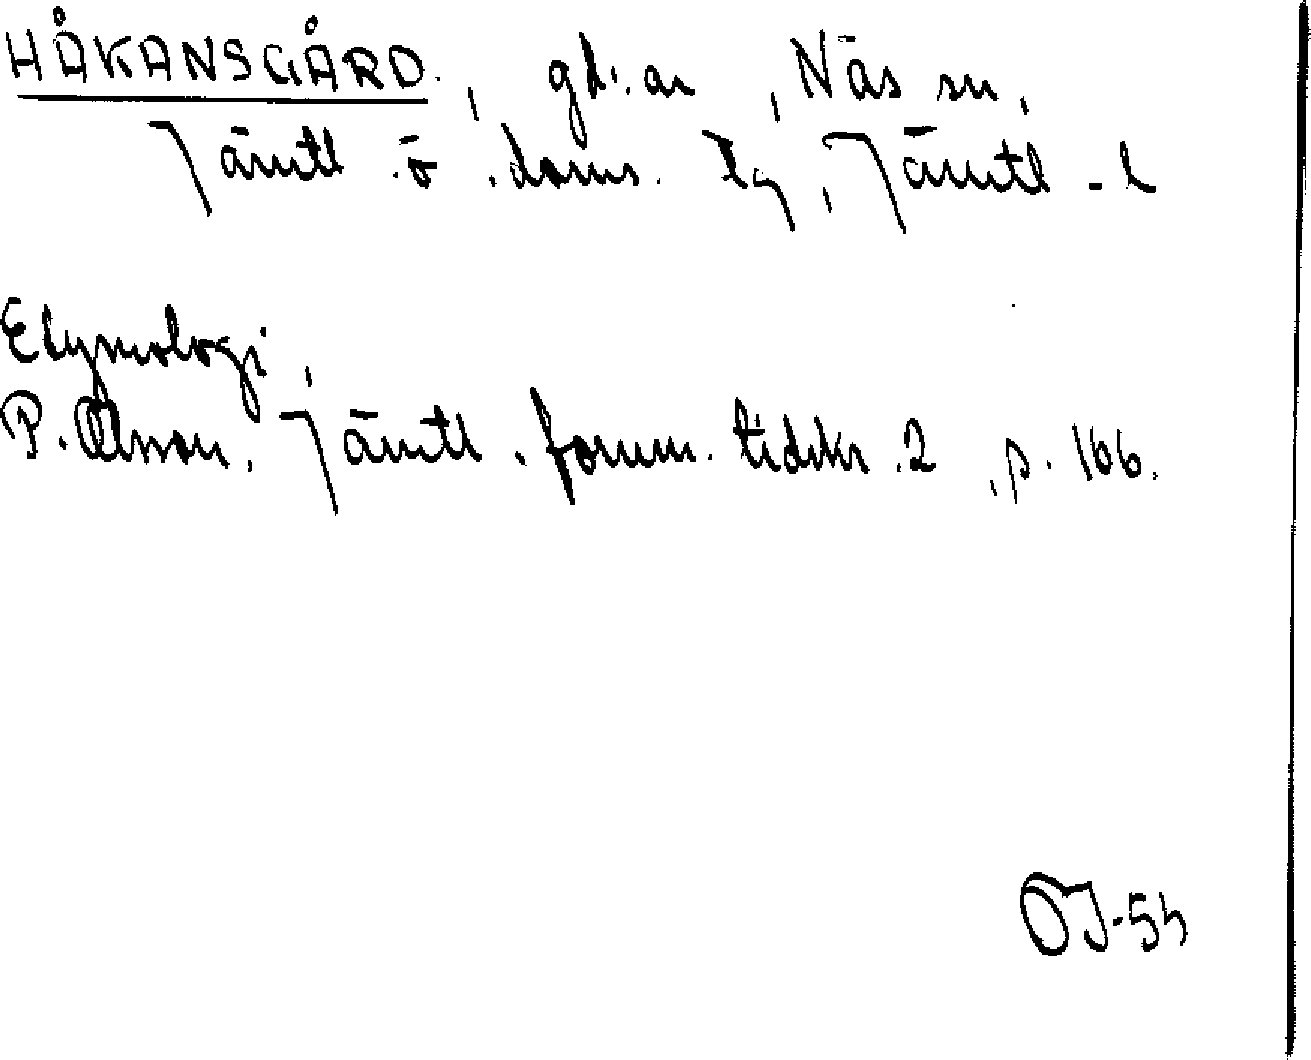 HÅKANSGÅRD, gd:ar, Näs sn,
Jämtl. ö. doms. tg, Jämtl. l
Etymologi,
P. Olsson. Jämtl. fornm. tidskr. 2, p. 166.
OJ-54